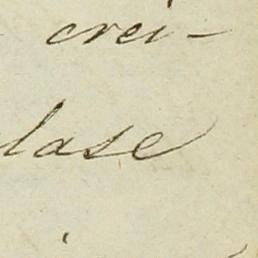 crei-
lase